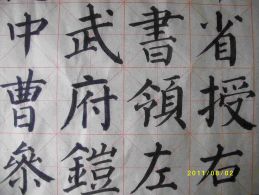 省授右
書領左
武府鎧
中曹參
2011/08/02